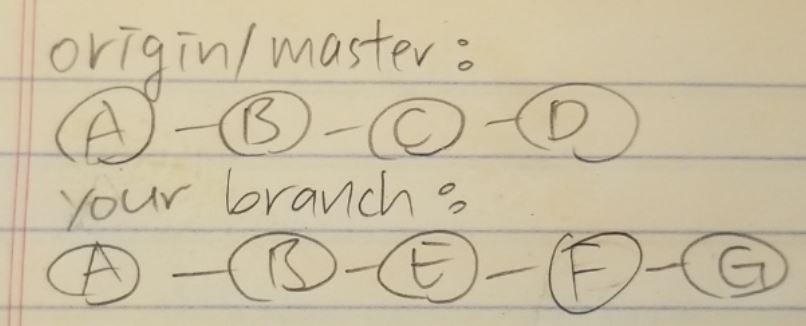 origin/master:
A - B - C - D
your branch:
A - B - E - F - G